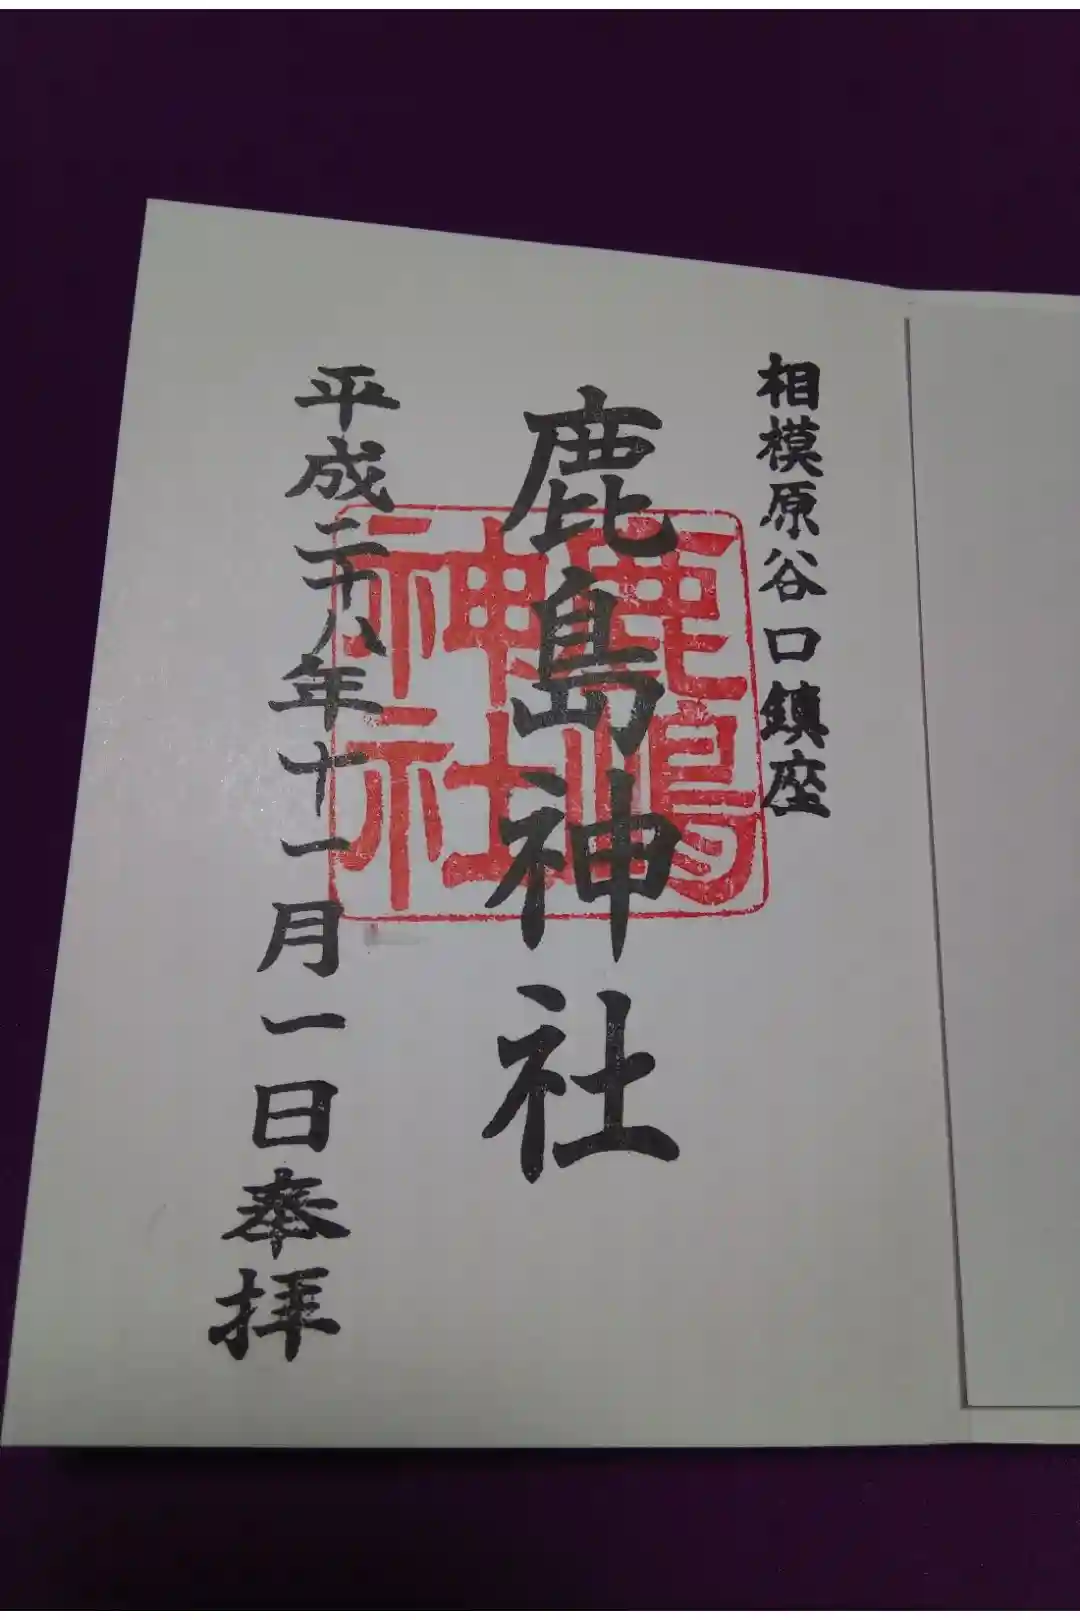 相模原谷口鎮座
鹿島神社
平成二十八年十一月一日奉拝
鹿嶋
神社